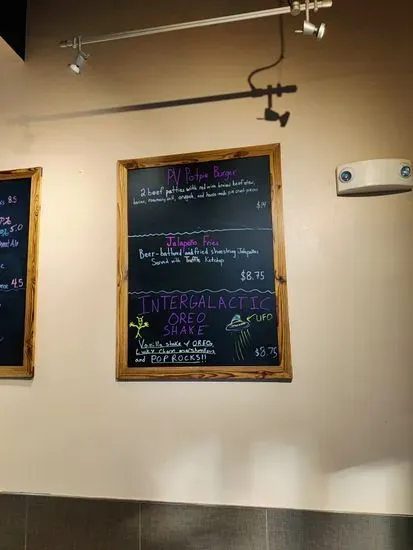 PV Potpie Burger
2 beef patties with red wine braised beef stew,
bacon, rosemary aioli, arugula, and house-made pie crust pieces
$14
Jalapeño Fries
Beer-battered and fried shoestring Jalapeños
Served with Truffle Ketchup
$8.75
INTERGALACTIC
OREO
SHAKE
UFO
Vanilla shake w/ OREO,
Lucky Charm marshmallows,
and POP ROCKS!!
$8.75
8.5
5.0
4.5